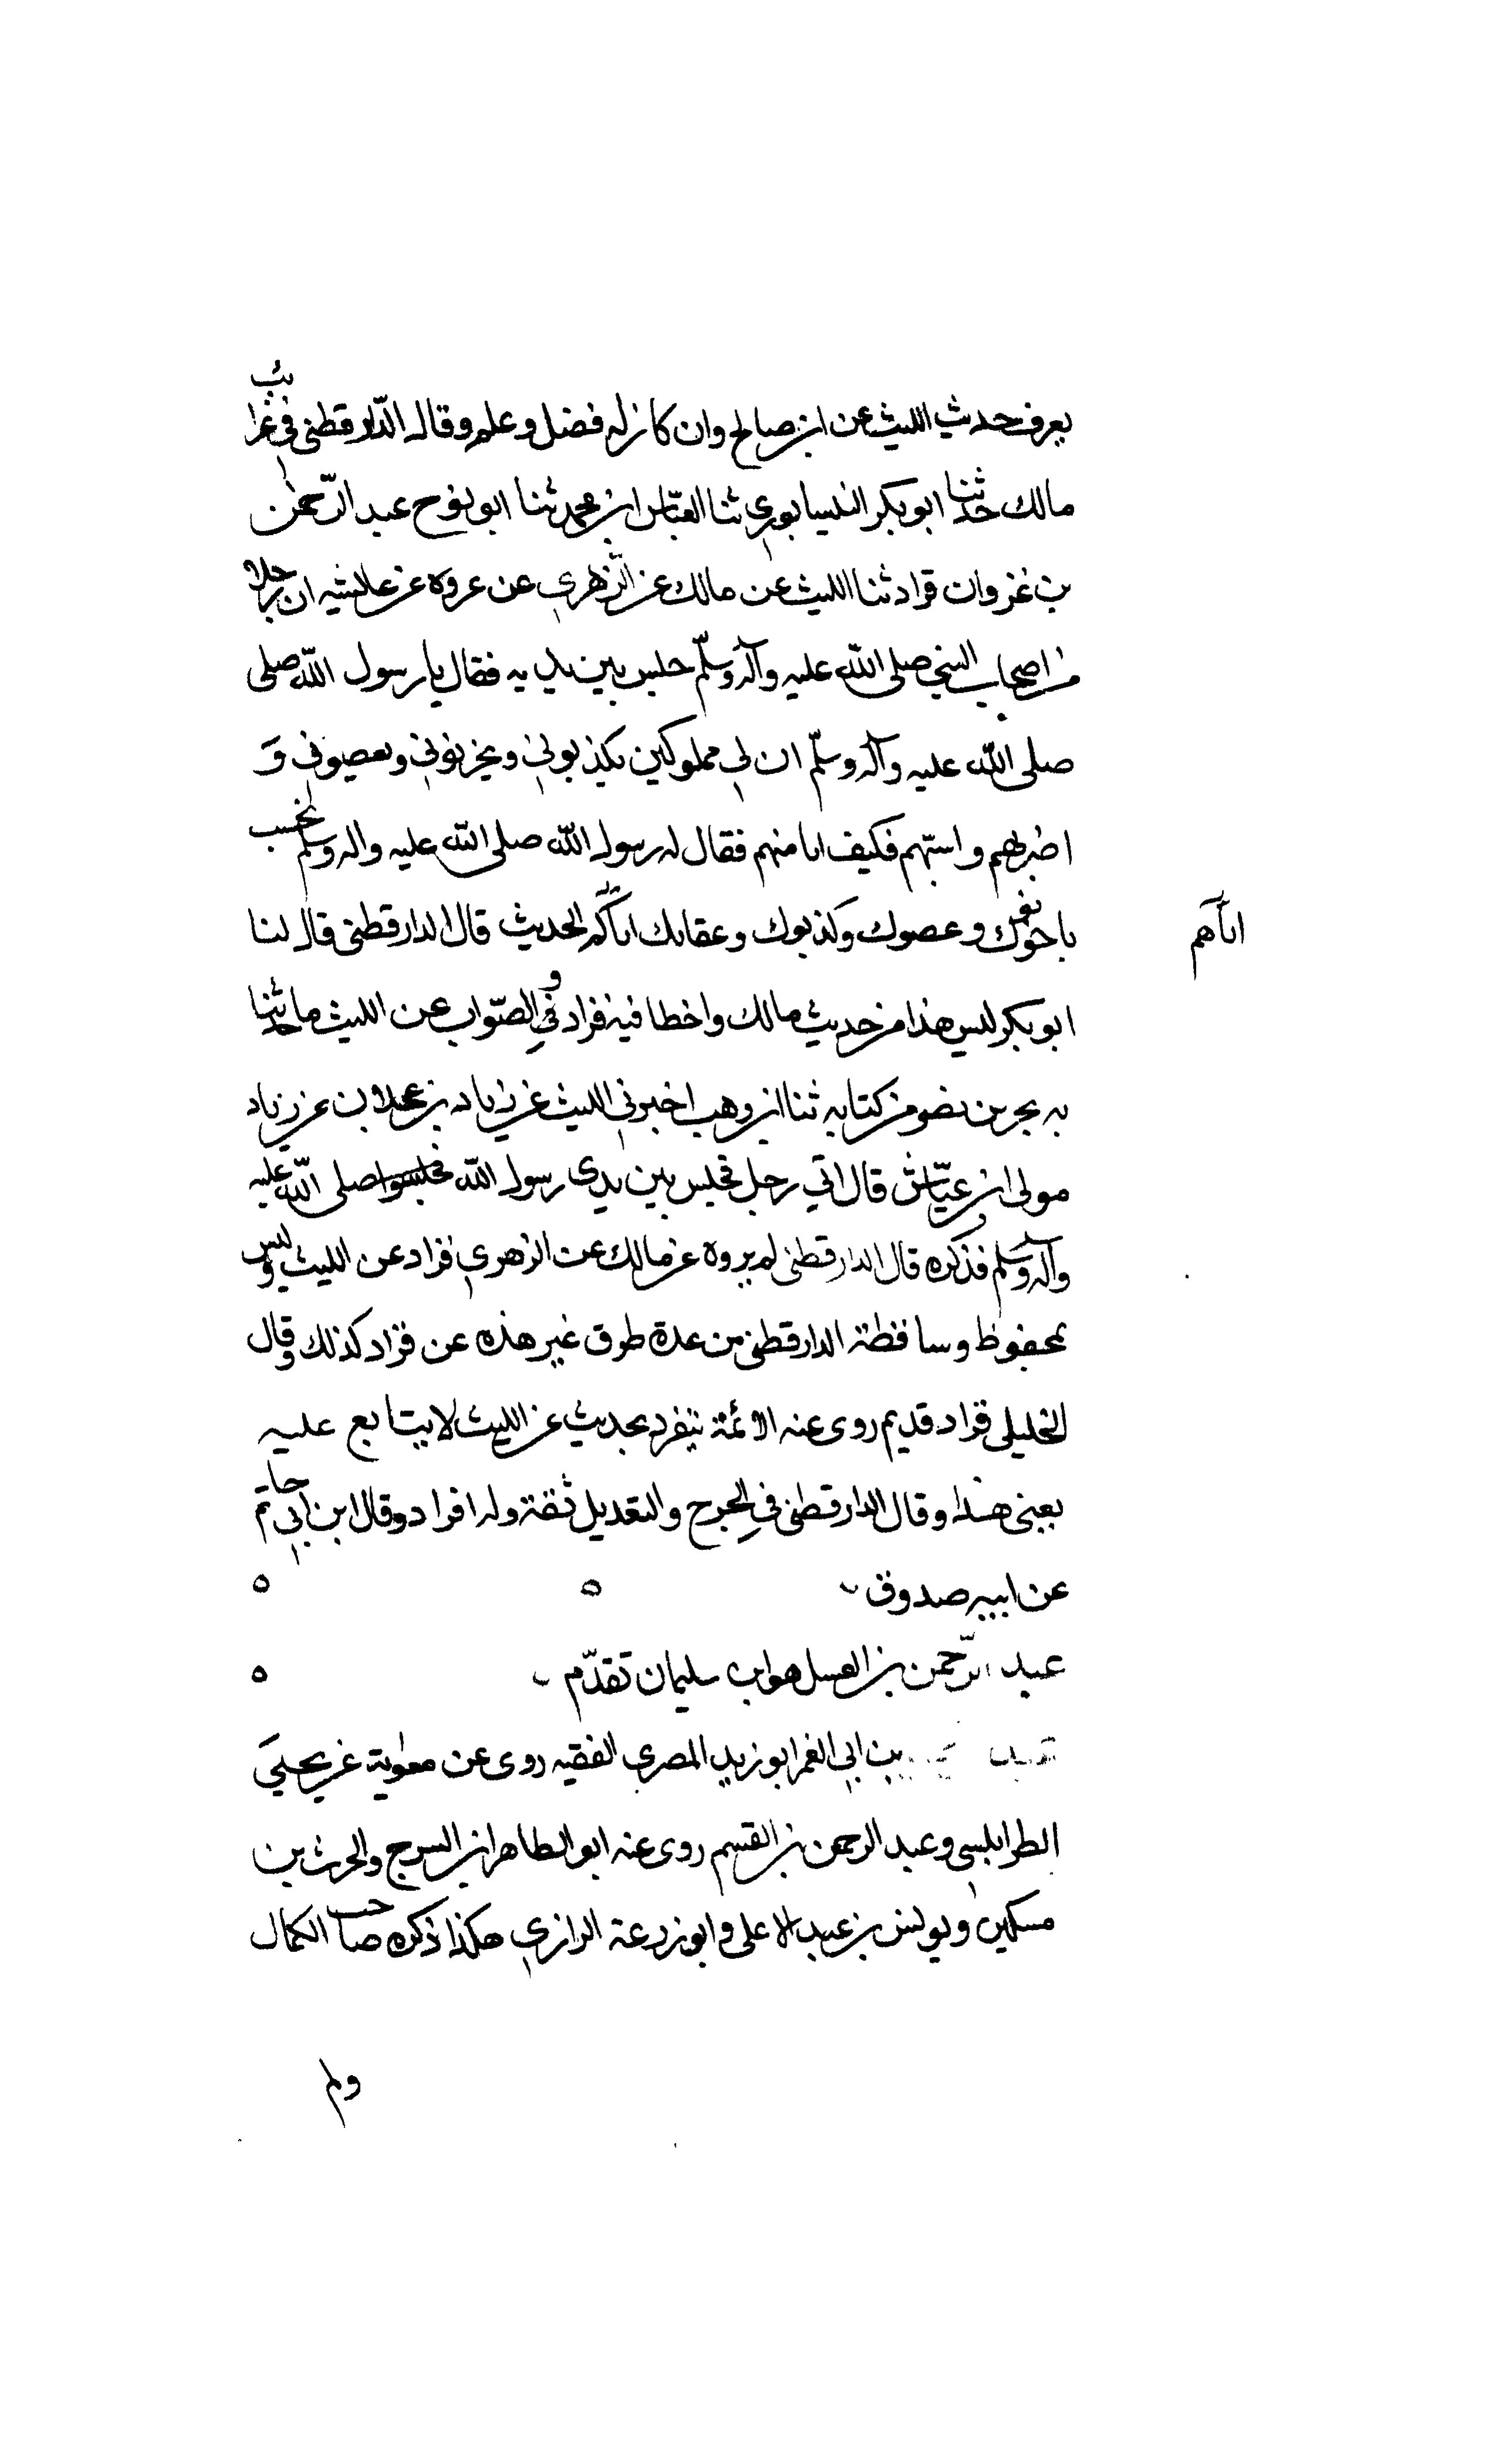 يعرف حديث الليث عن ابن صالح وان كان له فضل وعلم وقال الدّارقطني في غرائب
مالك حدثنا ابو بكر النيسابوري ثنا العبّاس ابن محمد ثنا ابو نوح عبد الرّحمن
بن غزوان قراد ثنا الليث عن مالك عن الزّهري عن عروة عن عايشه ان رجلا
من اصحاب النبي صلى الله عليه وآله وسلّم جلس بين يديه فقال يا رسول الله صلى
صلى الله عليه وآله وسلّم ان لي مملوكين يكذبوني ويخونوني ويعصوني وَ
اضربهم واسبّهم فكيف انا منهم فقال له رسول الله صلى الله عليه واله وسلم بحسب
ما خونوك وعصوك وكذبوك وعقابك اياهم الحديث قال الدارقطني قال لنا
اياهم
ابو بكر ليس هذا من حديث مالك واخطا فيه قراد وفي الصّواب عن الليث ما حدثنا
به بحر بن نصر من كتابه ثنا ابن وهب اخبرني الليث عن زياد بن عجلان عن زياد
مولى ابن عيّاش قال اتي رجل فجلس بين يدي رسول الله صلى الله عليه
وآله وسلم فذكره قال الدارقطني لم يروه عن مالك عن الزهري قراد عن الليث وليس
بمحفوظ وساقطة الدارقطني من عدة طرق غير هذه عن قراد كذلك وقال
الخليلي قراد قديم روى عنه الائمة يتفرد بحديث عن الليث لا يتابع عليه
يعني هذا وقال الدارقطني في الجرح والتعديل ثقة وله افراد وقال ابن ابي حاتم
عن ابيه صدوق
عبد الرّحمن بن الغسيل هو ابن سليمان تقدّم
عبد بن ابي الغمر ابو زيد المصري الفقيه روى عن معوية عن يحيى
الطرابلسي وعبد الرحمن بن القسم روى عنه ابو الطاهر ابن السرح والحرث بن
مسكين ويونس بن عبد الاعلى وابو زرعة الرازي هكذا ذكره صاحب الكمال
ولم